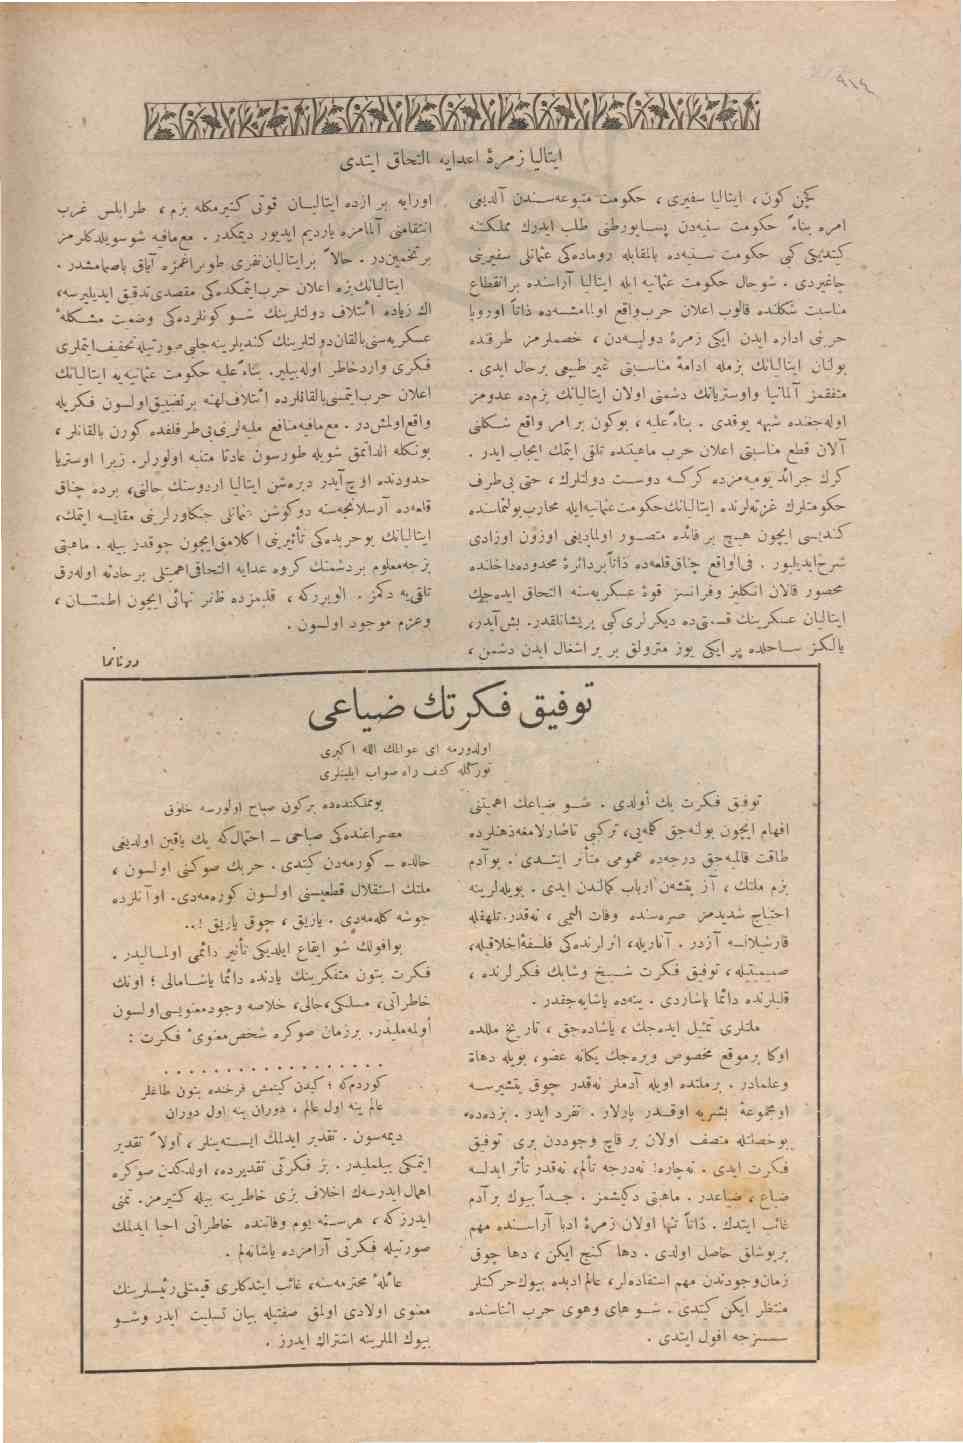 ٩١٤
ايتاليا زمرۀ اعدايه التحاق ايتدى
كچن كون، ايتاليا سفيرى، حكومت متبوعه‌سندن آلديغى
امره بناءً حكومت سنيه‌دن پساپورطنى طلب ايدرك مملكتنه
كيتديكى كبى حكومت سنيه‌ده بالمقابله روماده‌كى عثمانلى سفيرينى
چاغيردى. شو حال حكومت عثمانيه ايله ايتاليا آراسنده بر انقطاع
مناسبت شكلنده قالوب اعلان حرب واقع اولمامشسه‌ده ذاتاً اوروپا
حربنى اداره ايدن ايكى زمرۀ دوليه‌دن، خصملرمز طرفنده
بولنان ايتاليانك بزمله ادامۀ مناسبتى غير طبيعى بر حال ايدى.
متفقمز آلمانيا واوستريانك دشمنى اولان ايتاليانك بزم‌ده عدومز
اوله‌جغنده شبهه يوقدى. بناءً عليه، بوكون بر امر واقع شكلنى
آلان قطع مناسبتى اعلان حرب ماهيتنده تلقى ايتمك ايجاب ايدر.
كرك جرائد يوميه‌مزده كركسه دوست دولتلرك، حتى بى‌طرف
حكومتلرك غزته‌لرنده ايتاليانك حكومت عثمانيه ايله محارب بولنماسنده
كنديسى ايچون هيچ بر فائده متصور اولماديغى اوزون اوزادى
شرح ايديليور. فى‌الواقع چناق قلعه‌ده ذاتاً بر دائرۀ محدوده داخلنده
محصور قالان انكليز وفرانسز قوۀ عسكريه‌سنه التحاق ايده‌جك
ايتاليان عسكرينك قسمتى‌ده ديكرلرى كبى پريشانلقدر. بش آيدر،
يالكز ساحلده پر ايكى يوز مترولق بر ير اشغال ايدن دشمن،
اورايه بر ازده ايتاليان قوتى كتيرمكله بزم، طرابلس غرب
انتقامنى آلمامزه يارديم ايديور ديمكدر. مع‌مافيه شو سويلدكلرمز
بر تخمين‌در. حالاً بر ايتاليان نفرى طوپراغمزه آياق باصمامشدر.
ايتاليانك بزه اعلان حرب ايتمكده‌كى مقصدى تدقيق ايديليرسه،
اك زياده ائتلاف دولتلرينك شو كونلرده‌كى وضعيت مشكلۀ
عسكريه‌سنى بالقان دولتلرينك كنديلرينه جلبى صورتيله تخفيف ايتملرى
فكرى وارد خاطر اوله‌بيلير. بناءً عليه حكومت عثمانيه‌يه ايتاليانك
اعلان حرب ايتمسى بالقانلرده ائتلاف لهنه بر تضييق اولسون فكريله
واقع اولمش‌در. مع‌مافيه منافع مليه‌لرينى بى‌طرفلقده كورن بالقانلر،
بونكله الداتمق شويله طورسون عادتا متنبه اولورلر. زيرا اوستريا
حدودنده اوچ آيدر ديره‌شن ايتاليا اردوسنك حالنى، برده چناق
قلعه‌ده آرسلانجه‌سنه دوكوشن عثمانلى جنكاورلرينى مقايسه ايتمك،
ايتاليانك بو حربده‌كى تأثيرينى اكلامق ايچون چوقدر بيله. ماهيتى
بزجه معلوم بر دشمنك كروه عدايه التحاقى اهميتلى بر حادثه اوله‌رق
تلقى‌يه دكمز. الويررکه، قلبمزده ظفر نهائى ايچون اطمئنان،
وعزم موجود اولسون.
دوناما
توفيق فكرتك ضياعى
اولدورمه اى عوالمك الله اكبرى
نورڭله كشف راه صواب ايلينلرى
توفيق فكرت بك أولدى. شو ضياعك اهميتنى
افهام ايچون بوله‌جق كلمه‌يى، تركبى تاضارلامغه ذهنلرده
طاقت قالميه‌جق درجه‌ده عمومى متأثر ايتدى. بو آدم
بزم ملتك، آز يتشه‌ن ارباب كمالندن ايدى. بويله‌لرينه
احتياج شديدمز صره‌سنده وفات اليمى، نه‌قدر تلهفله
قارشيلانسه آزدر. آثاريله، اثرلرنده‌كى فلسفۀ اخلاقيله،
صميميتيله، توفيق فكرت شيخ وشابك فكرلرنده،
قلبلرنده دائما ياشاردى. ينه‌ده ياشايه‌جقدر.
ملتلرى تمثيل ايده‌جك، ياشاده‌جق، تاريخ مللده
اوكا بر موقع مخصوص ويره‌جك يكانه عضو، بويله دهاة
وعلمادر. بر ملتده اويله آدملر نه‌قدر چوق يتشيرسه
او مجموعۀ بشريه اوقدر پارلار. تفرد ايدر. بزده‌ده،
بو خصلتله متصف اولان بر قاچ وجوددن برى توفيق
فكرت ايدى. نه‌چاره! نه‌درجه تألم، نه‌قدر تأثر ايدلسه
ضياع، ضياعدر. ماهيتى دكيشمز. جداً بيوك بر آدم
غائب ايتدك. ذاتاً تنها اولان زمرۀ ادبا آراسنده مهم
بر بوشلق حاصل اولدى. دها كنج ايكن، دها چوق
زمان وجودندن مهم استفاده‌لر، عالم ادبده بيوك حركتلر
منتظر ايكن كيتدى. شو هاى وهوى حرب اثناسنده
سسزجه افول ايتدى.
بو مملكتده‌ده بركون صباح اولورسه خلوق
مصراعنده‌كى صباحى ــ احتمال‌كه پك ياقين اولديغى
حالده ــ كورمه‌دن كيتدى. حربك صوكنى اولسون،
ملتك استقلال قطعيسنى اولسون كوره‌مه‌دى. او آنلرده
جوشه كله‌مه‌دى. يازيق، چوق يازيق!..
بو افولك شو ايقاع ايلديكى تأثير دائمى اولماليدر.
فكرت بتون متفكرينك يادنده دائما ياشامالى؛ اونك
خاطراتى، مسلكى، حالى، خلاصه وجود معنويسى اولسون
أولمه‌مليدر. بر زمان صوكره شخص معنوئ فكرت:
. . . . . . . . . . . . . . . . .
كوردم كه؛ كيدن كيتمش فرخنده بتون طاغلر
عالم ينه اول عالم، دوران ينه اول دوران
ديمه‌سون. تقدير ايدلمك ايسته‌ينلر، اولاً تقدير
ايتمكى بيلمليدر. بز فكرتى تقديرده، اولدكدن صوكره
اهمال ايدرسه‌ك اخلاف بزى خاطرينه بيله كتيرمز. تمنى
ايدرزكه، هر سنه يوم وفاتنده خاطراتى احيا ايدلمك
صورتيله فكرتى آرامزده ياشاته‌لم.
عائلۀ محترمه‌سنه، غائب ايتدكلرى قيمتلى رئيسلرينك
معنوى اولادى اولمق صفتيله بيان تسليت ايدر وشو
بيوك الملرينه اشتراك ايدرز.